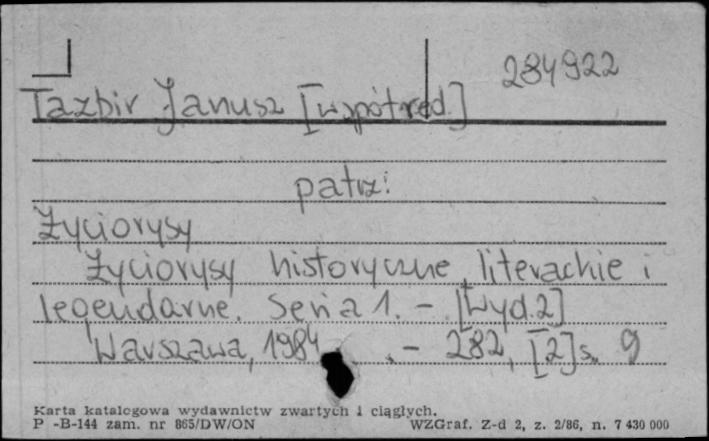 284922
Tazbir Janusz [współred.]
patrz:
Życiorysy
Życiorysy historyczne, literackie i
legendarne. Seria 1. - [Wyd. 2]
Warszawa, 1984. - 282, [2] s. 9
Karta katalogowa wydawnictw zwartych i ciągłych.
P -B-144 zam. nr 865/DW/ON WZGraf. Z-d 2, z. 2/86, n. 7 430 000